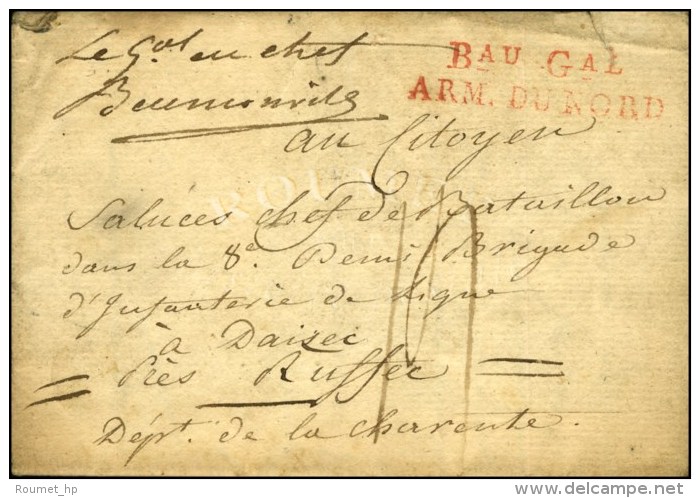 Le G.al en chef
Beurnonville
BAU GAL
ARM. DU NORD
au Citoyen
Saluces chef de Bataillon
dans la 8e. Demi Brigade
d'Infanterie de Ligne
à Daisec
Près Ruffec
Dépt. de la Charente.
Roumet_hp
delcampe.net